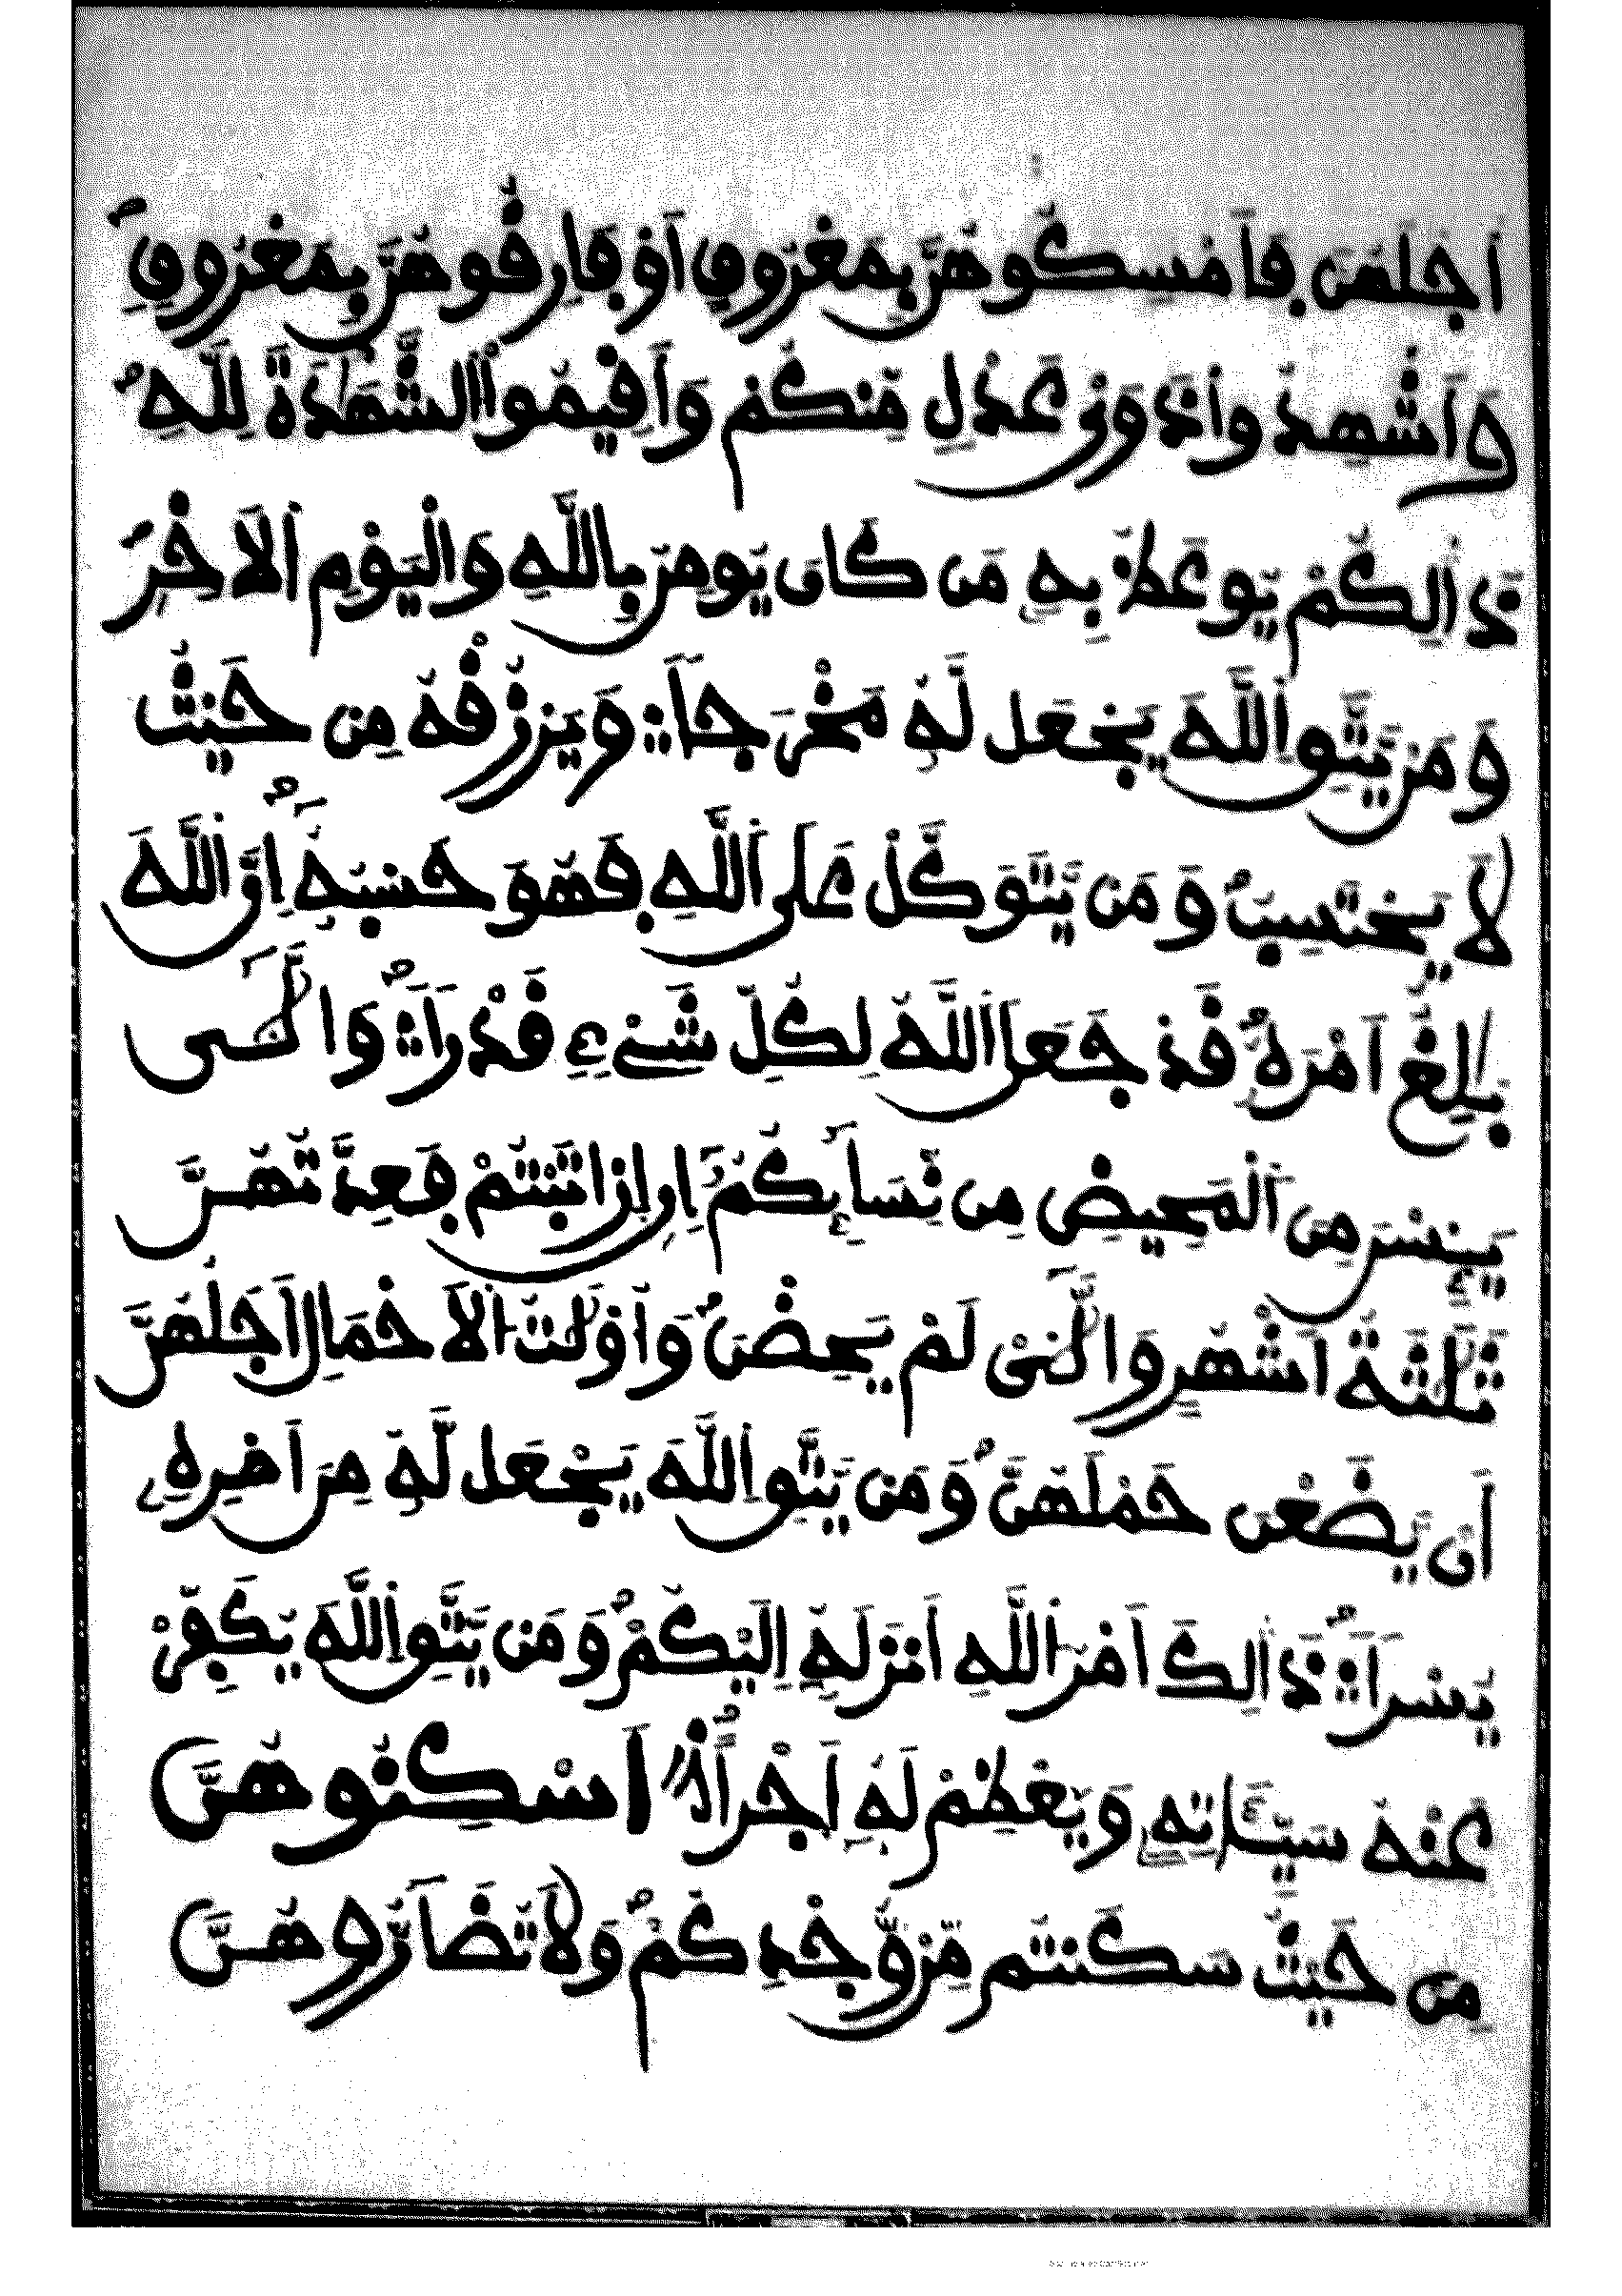 أَجَلَهُنَّ فَأَمْسِكُوهُنَّ بِمَعْرُوفٍ أَوْ فَارِقُوهُنَّ بِمَعْرُوفٍ
وَأَشْهِدُوا ذَوَىْ عَدْلٍ مِّنكُمْ وَأَقِيمُوا الشَّهَٰدَةَ لِلَّهِ
ذَٰلِكُمْ يُوعَظُ بِهِ مَن كَانَ يُومِنُ بِاللَّهِ وَالْيَوْمِ الَاخِرِ
وَمَنْ يَّتَّقِ اللَّهَ يَجْعَل لَّهُ مَخْرَجاً وَيَرْزُقْهُ مِنْ حَيْثُ
لَا يَحْتَسِبُ وَمَنْ يَّتَوَكَّلْ عَلَى اللَّهِ فَهُوَ حَسْبُهُ إِنَّ اللَّهَ
بَٰلِغٌ أَمْرَهُ قَدْ جَعَلَ اللَّهُ لِكُلِّ شَىْءٍ قَدْراً وَالَّٰٓـِٔى
يَئِسْنَ مِنَ الْمَحِيضِ مِن نِّسَائِكُمْ إِنِ ارْتَبْتُمْ فَعِدَّتُهُنَّ
ثَلَٰثَةُ أَشْهُرٍ وَالَّٰٓـِٔى لَمْ يَحِضْنَ وَأُوْلَٰتُ الَاحْمَالِ أَجَلُهُنَّ
أَنْ يَّضَعْنَ حَمْلَهُنَّ وَمَنْ يَّتَّقِ اللَّهَ يَجْعَل لَّهُ مِنَ امْرِهِ
يُسْراً ذَٰلِكَ أَمْرُ اللَّهِ أَنزَلَهُ إِلَيْكُمْ وَمَنْ يَّتَّقِ اللَّهَ يُكَفِّرْ
عَنْهُ سَيِّـَٔاتِهِ وَيُعْظِمْ لَهُ أَجْراً أَسْكِنُوهُنَّ
مِنْ حَيْثُ سَكَنتُم مِّنْ وُّجْدِكُمْ وَلَا تُضَارُّوهُنَّ